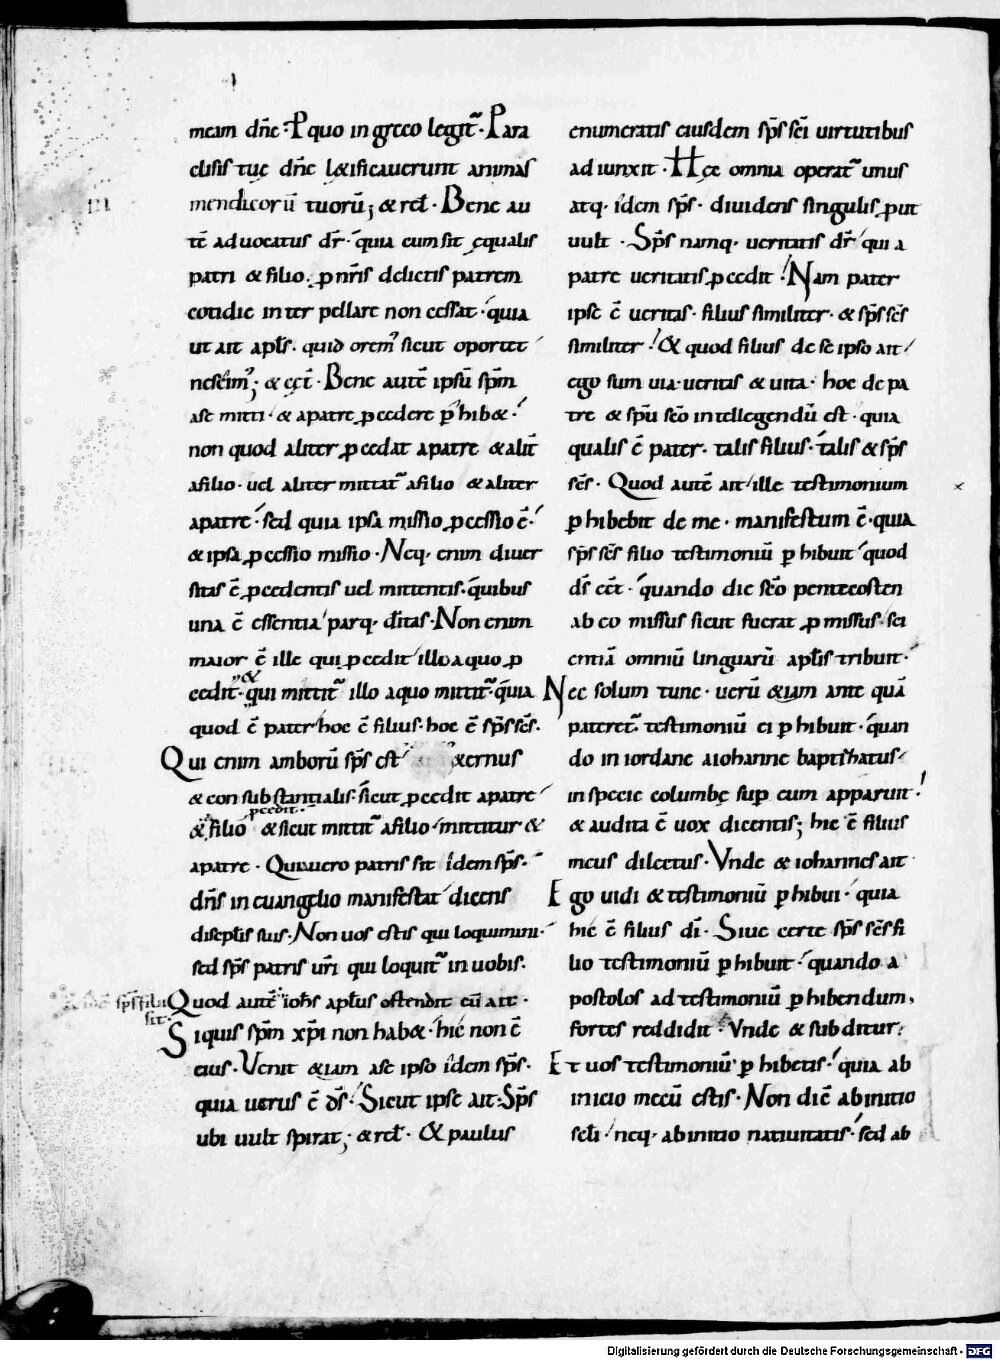 meam dñe · P quo in greco legit̃ · Para
clisis tuę dñe l&ificauerunt animas
mendicorũ tuorũ; & rel̃ · Bene au
tẽ aduocatus dr̃ · quia cum sit ęqualis
patri & filio · ꝓ nr̃is delictis patrem
cotidie inter pellare non cessat · quia
ut ait apl̃s · quid orem' sicut oportet
nescim'; & cęt̃ · Bene autẽ ipsũ sp̃m
ase mitti · & apatre ꝓcedere ꝑhib& ·
non quod aliter ꝓcedat apatre & alit̃
afilio · uel aliter mittat̃ afilio & aliter
apatre · sed quia ipsa missio ꝓcessio ẽ ·
& ipsa ꝓcessio missio · Neq· enim diuer
sitas ẽ ꝓcedentis uel mittentis · quibus
una ẽ essentia parq· dĩtas · Non enim
maior ẽ ille qui ꝓcedit illo aquo ꝓ
cedit · & qui mittit̃ illo aquo mittit̃ · quia
quod ẽ pater hoc ẽ filius · hoc ẽ sp̃s sc̃s ·
Qui enim amborũ sp̃s est &ernus
& con substantialis · sicut ꝓcedit apatre
& filio ꝓcedit · & sicut mittit̃ afilio mittitur &
apatre · Qui uero patris sit idem sp̃s ·
dñs in euangelio manifestat dicens
discipl̃is suis · Non uos estis qui loquimini ·
sed sp̃s patris ur̃i qui loquit̃ in uobis ·
idẽ sp̃s filii
sit ·
Quod autẽ ioh̃s apl̃us ostendit cũ ait ·
Siquis sp̃m xp̃i non hab& · hic non ẽ
eius · Venit &iam ase ipso idem sp̃s ·
quia uerus ẽ d̃s · Sicut ipse ait · Sp̃s
ubi uult spirat; & rel̃ · & paulus
enumeratis eiusdem sp̃s sc̃i uirtutibus
ad iunxit · Hęc omnia operat̃ unus
atq· idem sp̃s · diuidens singulis ꝓut
uult · Sp̃s namq· ueritatis dr̃ qui a
patre ueritatis ꝓcedit · Nam pater
ipse ẽ ueritas · filius similiter · & sp̃s sc̃s
similiter · & quod filius de se ipso ait
ego sum uia · ueritas & uita · hoc de pa
tre & sp̃u sc̃o intellegendũ est · quia
qualis ẽ pater · talis filius · talis & sp̃s
sc̃s · Quod autẽ ait ille testimonium
ꝑhibebit de me · manifestum ẽ · quia
sp̃s sc̃s filio testimoniũ ꝑhibuit quod
d̃s eẽt · quando die sc̃o pentecosten
ab eo missus sicut fuerat ꝓmissus · sci
entiã omniũ linguarũ apl̃is tribuit ·
Nec solum tunc · uerũ &iam ante quã
pateret̃ testimoniũ ei ꝑhibuit · quan
do in iordane aiohanne baptizatus
in specie columbę sup̃ eum apparuit ·
& audita ẽ uox dicentis; hic ẽ filius
meus dilectus · Vnde & iohannes ait
Ego uidi & testimoniũ ꝑhibui · quia
hic ẽ filius dĩ · Siue certe sp̃s sc̃s fi
lio testimoniũ ꝑhibuit · quando a
postolos ad testimoniũ ꝑhibendum,
fortes reddidit · Vnde & subditur;
Et uos testimoniũ ꝑhibetis · quia ab
inicio mecũ estis · Non dic̃ abinitio
scl̃i · neq· abinitio natiuitatis · sed ab
Digitalisierung gefördert durch die Deutsche Forschungsgemeinschaft - DFG